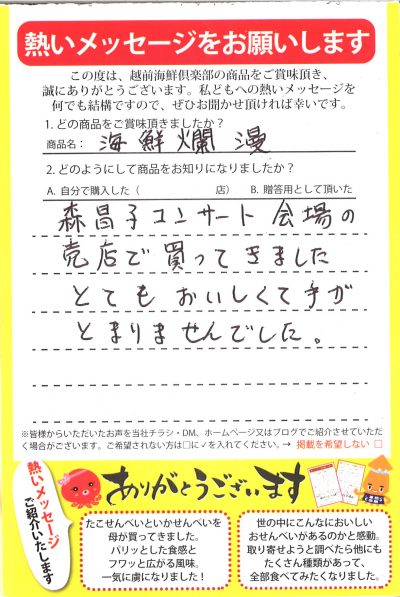 熱いメッセージをお願いします
この度は、越前海鮮倶楽部の商品をご賞味頂き、
誠にありがとうございます。私どもへの熱いメッセージを
何でも結構ですので、ぜひお聞かせ頂ければ幸いです。
1. どの商品をご賞味頂きましたか？
商品名： 海鮮爛漫
2. どのようにして商品をお知りになりましたか？
A. 自分で購入した（ 店） B. 贈答用として頂いた
森昌子コンサート会場の
売店で買ってきました
とてもおいしくて手が
とまりませんでした。
※皆様からいただいたお声を当社チラシ・DM、ホームページ又はブログでご紹介させていただ
く場合がございます。ご希望されない方は□に✓を入れてください。→ 掲載を希望しない □
熱いメッセージ
ご紹介いたします
ありがとうございます
たこせんべいといかせんべいを
母が買ってきました。
パリッとした食感と
フワッと広がる風味。
一気に虜になりました！
世の中にこんなにおいしい
おせんべいがあるのかと感動。
取り寄せようと調べたら他にも
たくさん種類があって、
全部食べてみたくなりました。